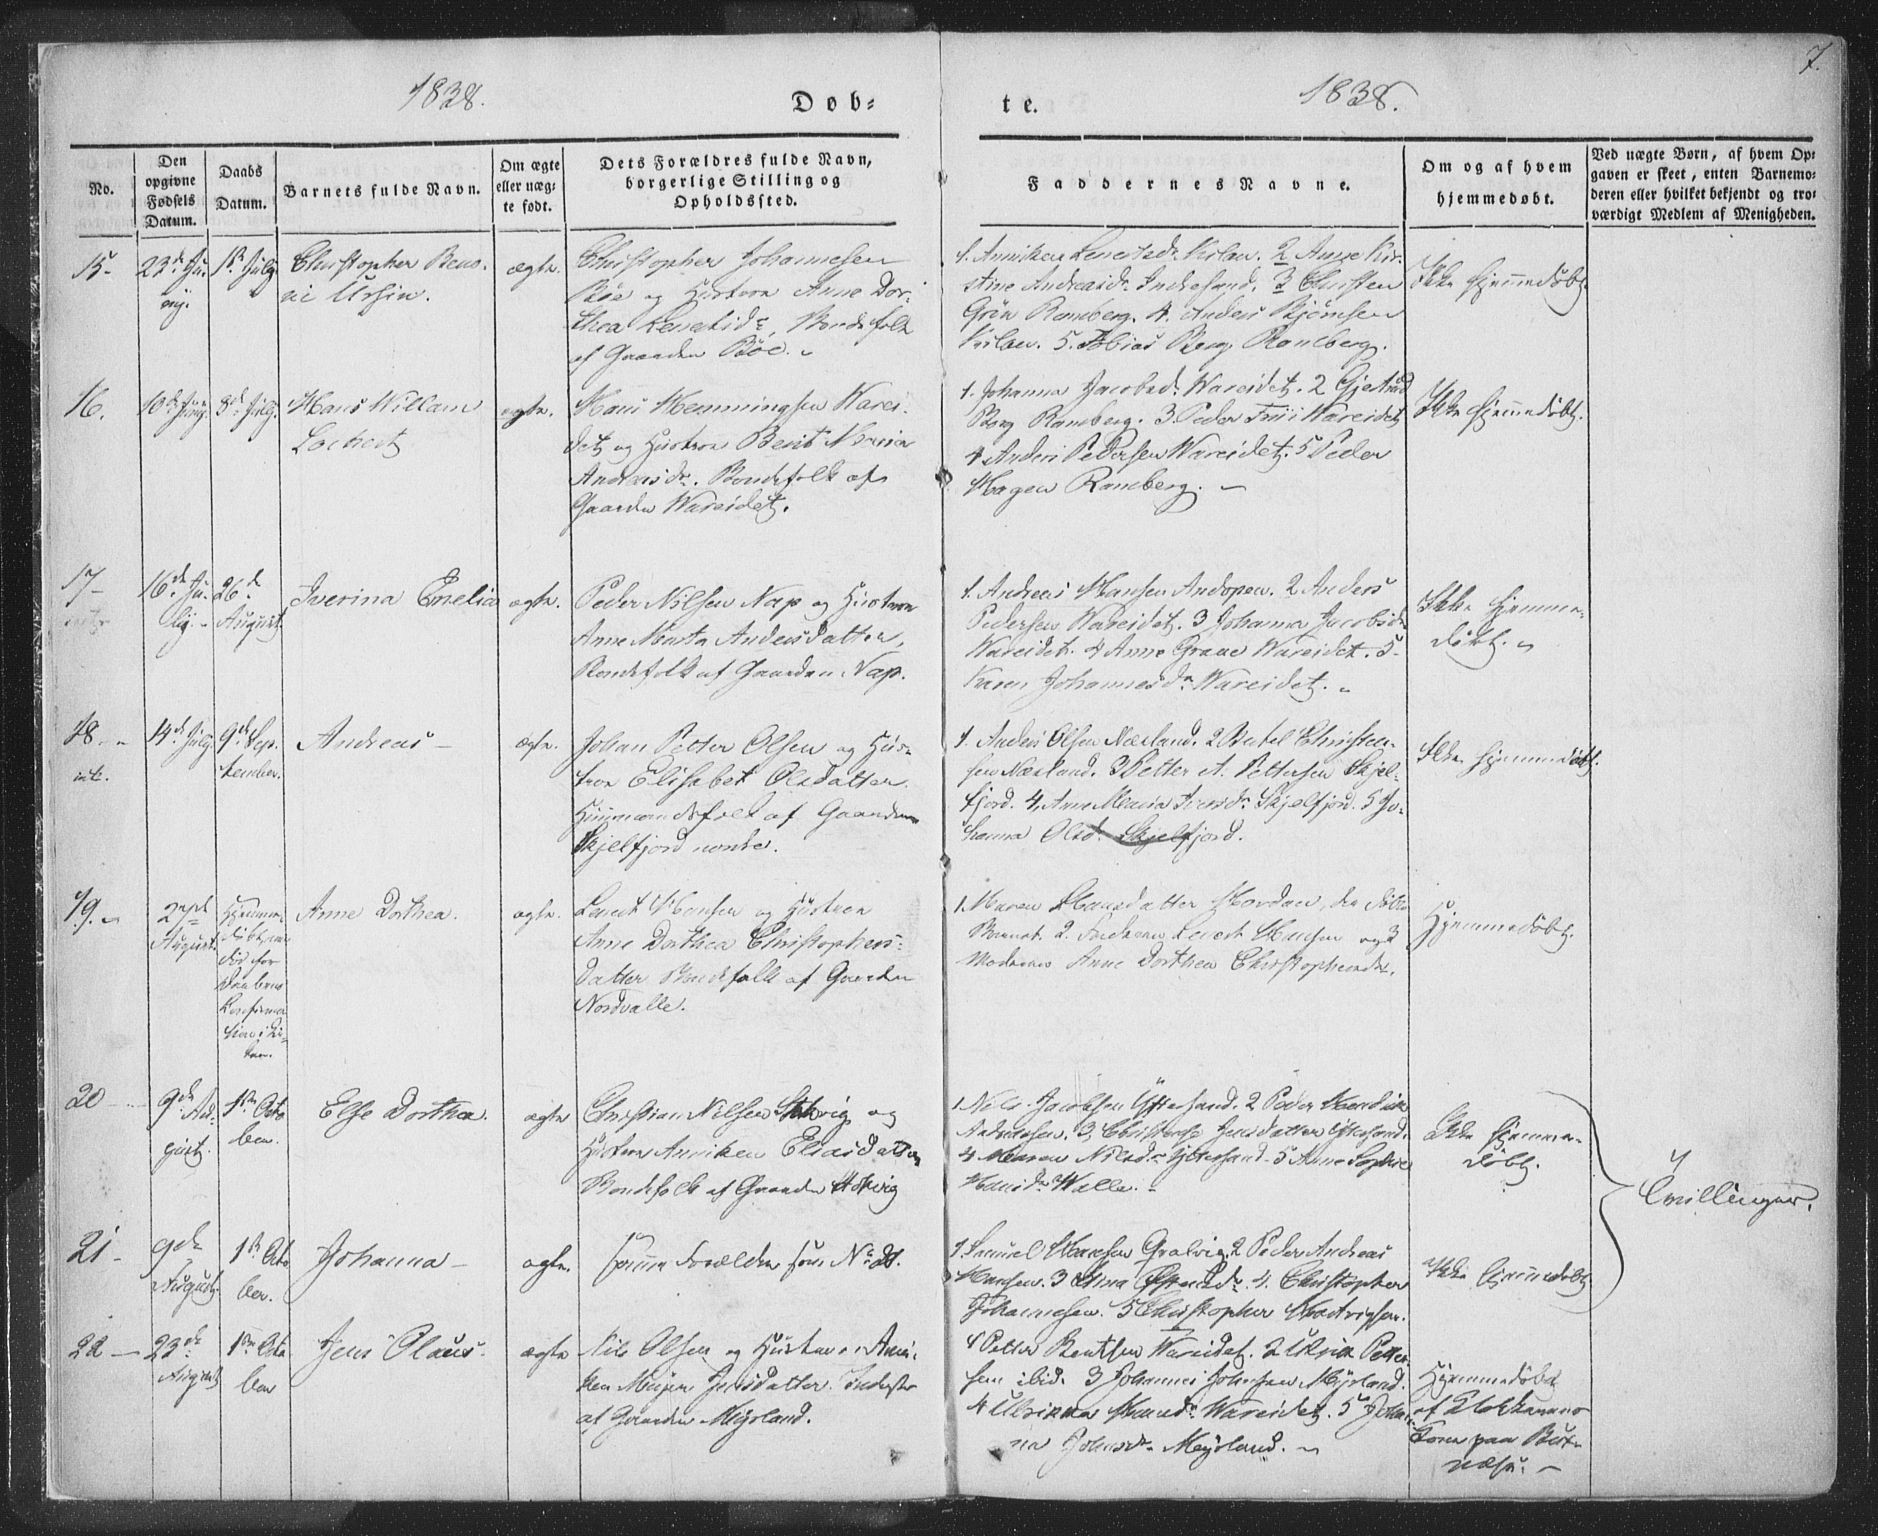 7.
1838.
Döb-
te.
1838.
No.
Den
opgivne
Fødsels
Datum.
Daabs
Datum.
Barnets fulde Navn.
Om ægte
eller uæg-
te født.
Dets Forældres fulde Navn,
borgerlige Stilling og
Opholdssted.
Faddernes Navne.
Om og af hvem
hjemmedøbt.
Ved uægte Børn, af hvem Op-
gaven er skeet, enten Barnemo-
deren eller hvilket bekjendt og tro-
værdigt Medlem af Menigheden.
15-
23de Ju-
nij.
1ste Julij
Christopher Beno-
ni Ursin.
ægte.
Christopher Johannesen
Böe og Hustroe Anne Dor-
thea Lenertsdr, Bondefolk
af Gaarden Böe.
1. Anniken Lenertsd. 2 Anne Kir-
stine Andreasd. 3 Christen
Grön Ramberg. 4. Anders Bjömsen
5. Tobias Berg Ramberg.
Ikke hjemmedöbt.
16.
10de Junij.
8de Julij.
Hans Willam
Lockert
ægte.
Hans Hemmingsen Warei-
det og Hustroe Berit Maria
Andreasdr. Bondefolk af
Gaarden Wareidet.
1. Johanna Jacobsd. Wareidet. 2 Gjertrud
Berg Ramberg. 3. Peder Friis Wareidet
4 Anders Pedersen Wareidet. 5 Peder
Hagen Ramberg.
Ikke hjemmedöbt.
17-
16de Ju-
lij.
26de
August.
Iverina Emelia
ægte.
Peder Nilsen Nap og Hustroe
Anne Marta Andersdatter,
Bondefolk af Gaarden Nap.
1. Andreas Hansen Andopen. 2 Anders
Pedersen Wareidet. 3 Johanna Jacobsdr
Wareidet. 4 Anne Graae Wareidet. 5
Karen Johannesdr Wareidet.
Ikke hjemme-
döbt.
18.
14de Julij
9de Sep-
tember.
Andreas
ægte.
Johan Petter Olsen og Hus-
troe Elisabet Olsdatter.
Huusmandsfolk af Gaarden
Skjelfjord nordre.
1. Anders Olsen Næsland. 2 Bertel Christen-
sen Næsland. 3 Petter A. Pettersen Skjel-
fjord. 4. Anne Maria Iversdr Skjelfjord. 5 Jo-
hanna Olsd. Skjelfjord.
Ikke hjemmedöbt.
19.
2den
August.
Hjemme-
döbt, men
död for
Daabens
Confirma-
tion i Kir-
ken.
Anne Dorthea.
ægte.
Lenert Hansen og Hustroe
Anne Dorthea Christophers-
datter Bondefolk af Gaarden
Nordvalle.
1. Maren Hansdatter der döbte
Barnet. 2. Faderen Lenert Hansen og 3
Moderen Anne Dorthea Christophersdr.
Hjemmedöbt.
20
9de Au-
gust.
1ste Octo
ber.
Else Dorthea.
ægte
Christian Nilsen Stokvig og
Hustroe Anniken Eliasdatter
Bondefolk af Gaarden Stokvig
1. Nils Jacobsen Yttersand. 2 Peder Hendrik
Andreasen. 3, Christense Jensdatter Yttersand.
4 Maren Nilsdr Yttersand. 5 Anne Sophie
Hansdr Walle.
Ikke hjemme-
döbt.
Tvillinger.
21-
9de
August.
1ste Octo
ber.
Johanna
ægte.
samme Forældre som No 20.
1. Samuel Hansen Qvalvig. 2 Peder Andreas
Hansen. 3 Stina 4. Christopher
Johannesen. 5 Christopher Hendrigsen.
Ikke hjemmedöbt
22
23de
August
1ste Octo
ber
Jens Olaus.
ægte
Nils Olsen og Hustroe Anni-
ken Marja Jensdatter. Inderster
af Gaarden Myrland.
1 Petter Bentsen Wareidet. 2 Ulrik Petter-
sen ibid. 3 Johannes Johnsen Myrland.
4 Ulrikka Hansdr Wareidet. 5 Johan-
na Johnsdr Myrland.
Hjemmedöbt
af Klokkerens
Kone paa Bux-
næs.